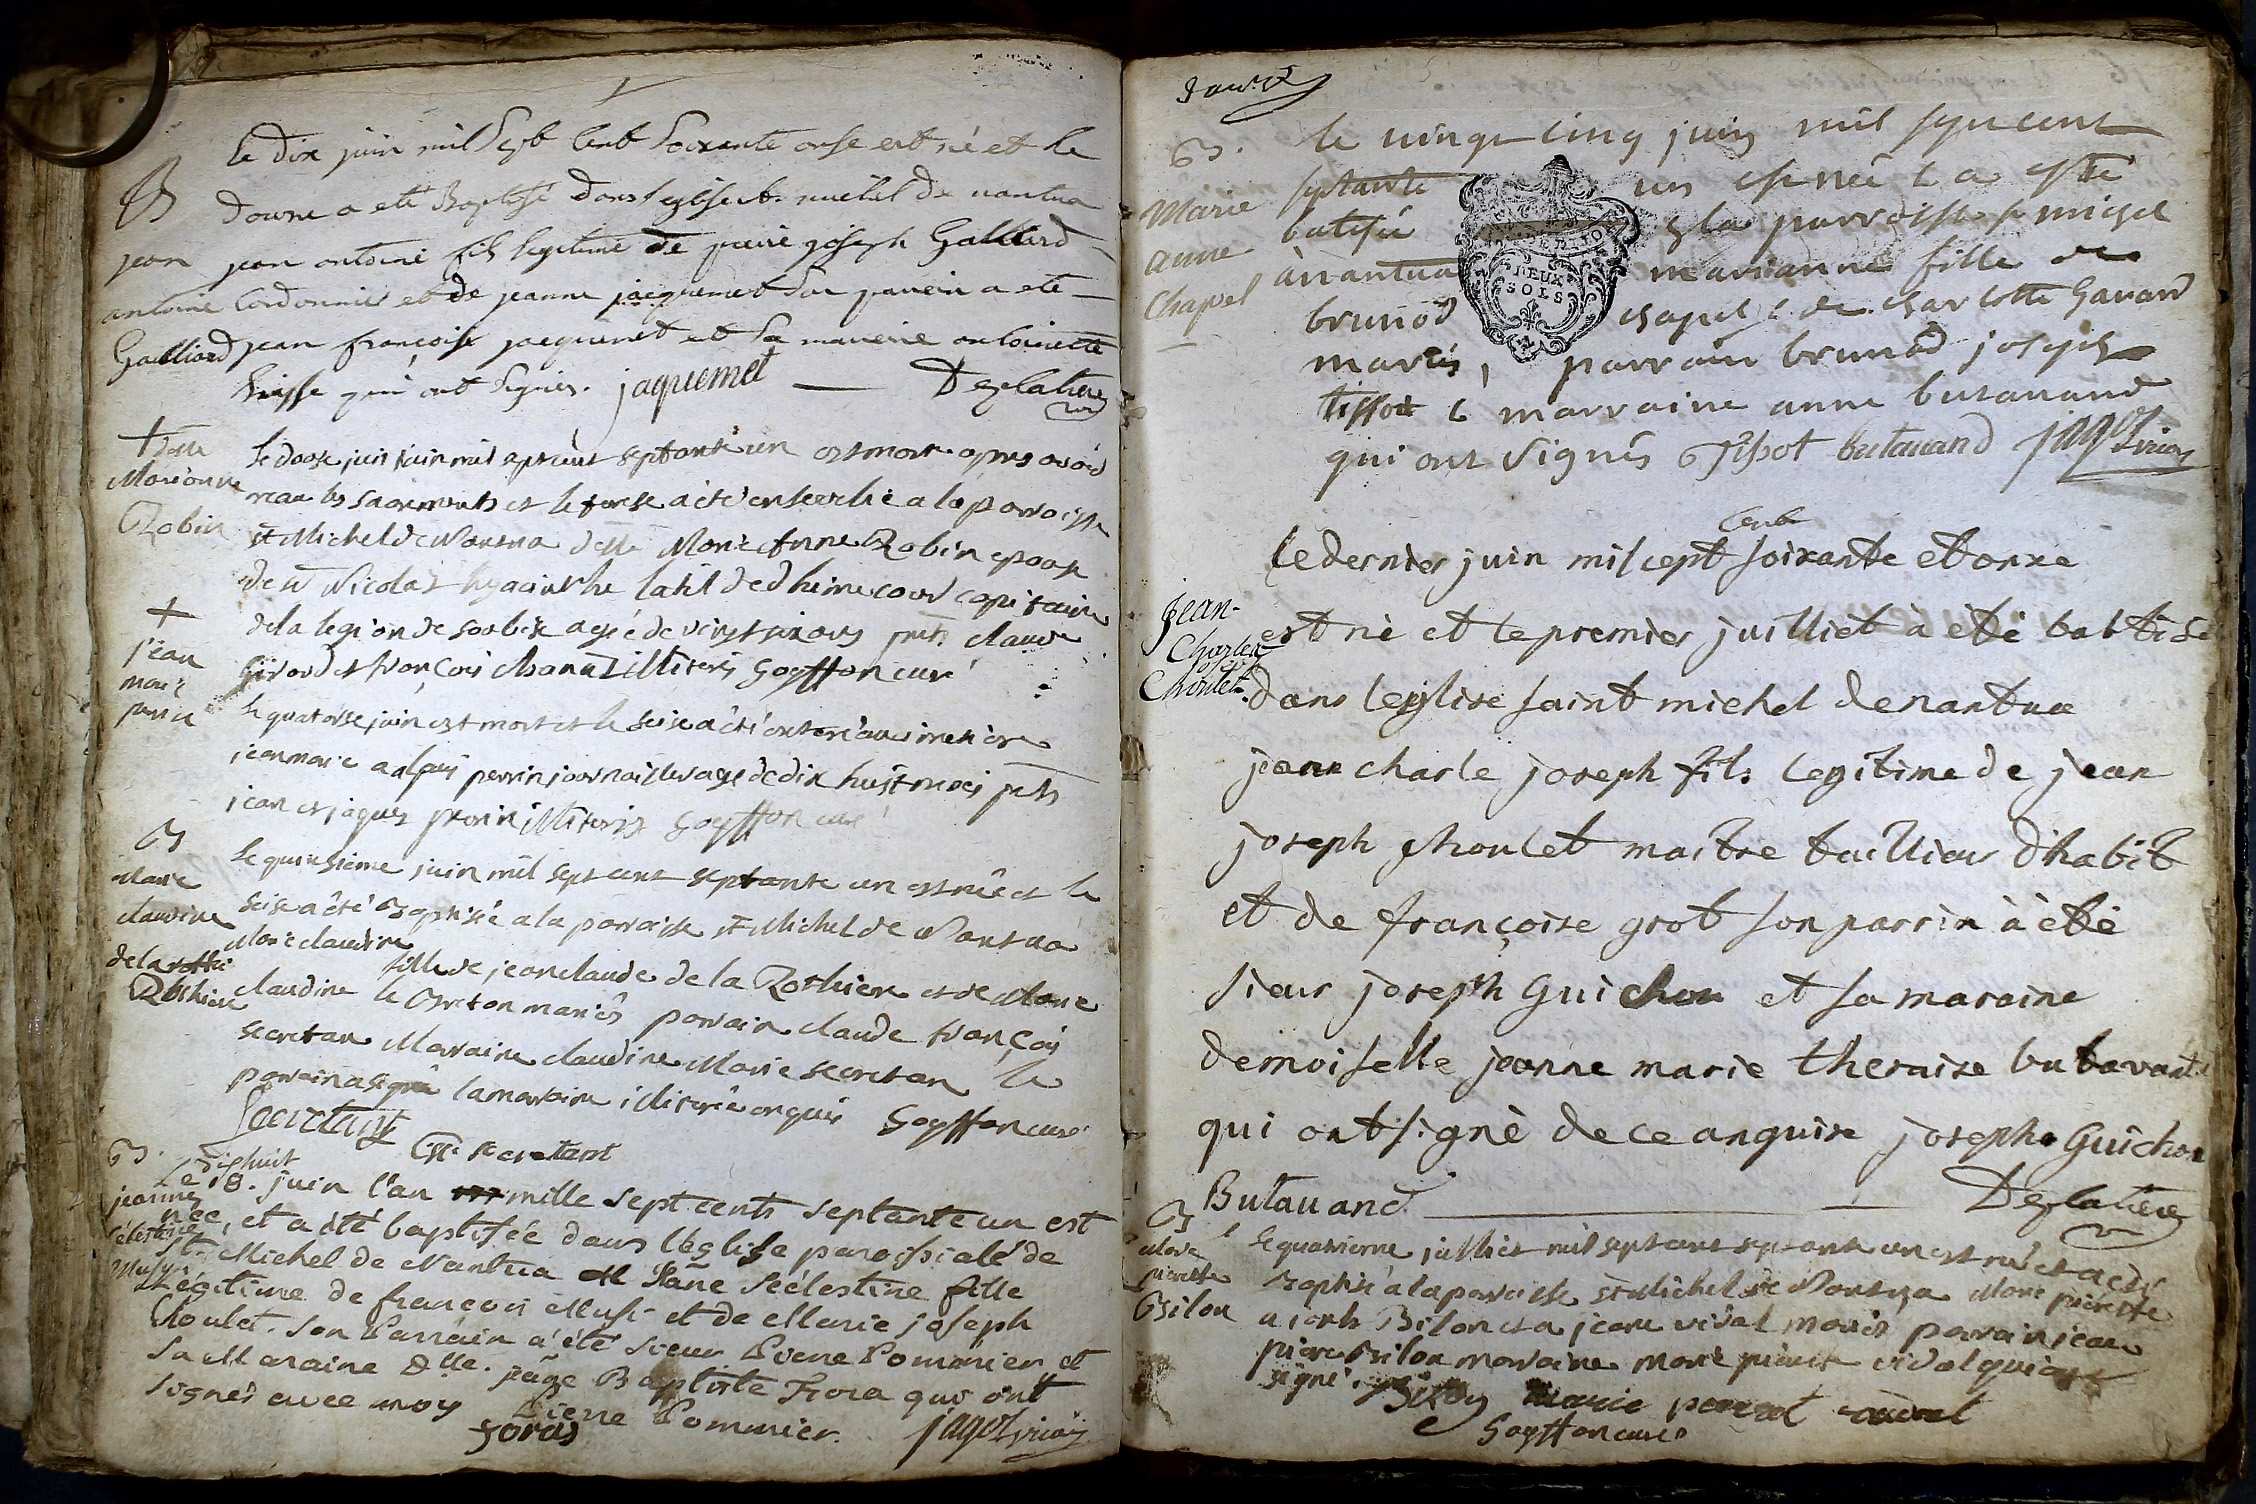 B
jean
antoine
Galliard
Le dix juin mil sept cent soixante onse est né et le
douse a eté Baptisé dans leglise st. michel de nantua
jean antoine fils legitime de pierre joseph Galliard
cordonnier et de jeanne jacquemet son parrein a eté
jean françois jacquemet et sa mareine antoinette
qui ont signés. jaquemet Deglatiere
+ delle
Marianne
Robin
Le douse juin mil sept cent septante un est morte apres avoir
recu les sacrements et le treise a eté ensevelie a la parroisse
st Michel de Nantua delle Marie Anne Robin epouse
de Sr Nicolas hyacinthe latil de dhimecourt capitaine
de la legion de soubise agée de vingt six ans pnts claude
Girod et françois chanal illiterés Goyffon curé
+
jean
marie
perrin
le quatorse juin est mort et le seise a eté enterré au cimetiere
jean marie a alexis perrin journaillier agé de dix huit mois pnts
jean et jaques perrin illiterés Goyffon curé
B
Marie
claudine
de la
Rothiere
le quinsieme juin mil sept cent septante un est née et le
seise a été Baptisée a la paroisse st Michel de Nantua
Marie claudine
fille de jean claude de la Rothiere et de Marie
claudine le Breton mariés parrain claude françois
secretan Marraine claudine Marie secretan le
parrain a signé la marraine illiterée enquis Goyffon curé
Secretan
secretant
B.
jeanne
célestine
Musy
dixhuit
Le 18. juin l'an mille sept cents septante un est
née, et a été baptisée dans l'Eglise paroissiale de
St. Michel de Nantua Jeañe Scélestine fille
Légitime de françois Musi et de Marie joseph
Choulet. son Parrain a été sieur Pierre Pommier et
sa Maraine Dlle. jeañe Baptiste Fora qui ont
signés avec moy Pierre Pommier. jagot vicaire
foras
B.
Marie
anne
Chapel
le vingt cinq juin mil sept cent
septante un est née & a esté
batisée a la parroisse st michel
à nantua marianne fille de
brunod chapel & de charlotte Gavard
mariés, parrain brunod joseph
tissot & marraine anne butavand
qui ont signés Tissot butavand jagot vicaire
DEUX
SOLS
Jean-
Charles
Joseph
Choulet.
cent
le dernier juin mil cept soixante et onze
est nè et le premier juilliet à étè babtisé
dans leglise saint michel de nantua
jean charle joseph fils legitime de jean
joseph choulet maitre taillieur d'habit
et de françoise grot son parrin à étè
sieur joseph Guichon et sa maraine
demoiselle jeanne marie theraise butavant
qui ont signè de ce anquise joseph Guichon
Butavand Deglatiere
B
Marie
pierrette
Bilon
le quatrieme julliet mil sept cent septante un est née et a eté
Baptisée a la paroisse st Michel de Nantua Marie pierrette
a joseph Bilon et a jeane vidal mariés parrain jean
pierre Bilon marraine marie pierrette vidal qui ont
signé. Bilon marie vidal
Goyffon curé